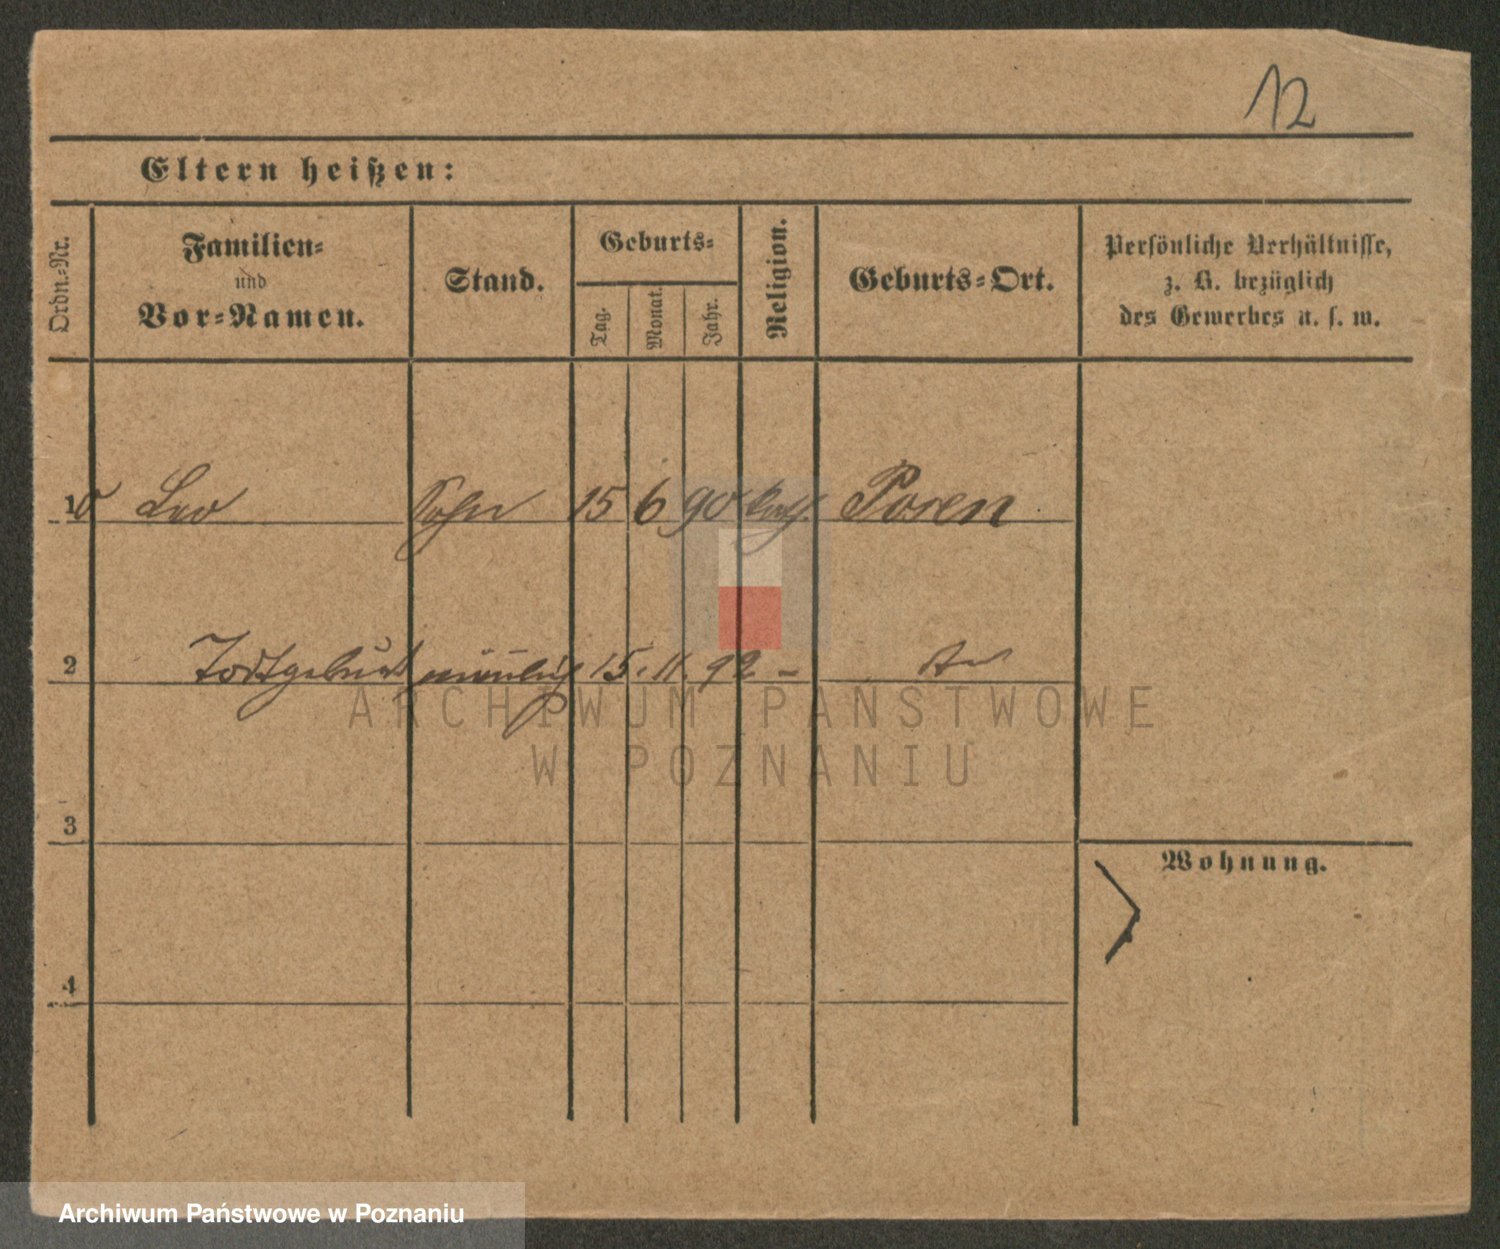 12
Eltern heißen:
Ordn.-Nr.
Familien-
und
Vor-Namen.
Stand.
Geburts-
Tag.
Monat.
Jahr.
Religion.
Geburts-Ort.
Persönliche Verhältnisse,
z. B. bezüglich
des Gewerbes u. s. w.
1 Leo Sohn 15 6 90 kath. Posen
2 Todtgeburt männlich 15. 11. 92 –
ARCHIWUM PAŃSTWOWE
W POZNANIU
3
Wohnung.
4
Archiwum Państwowe w Poznaniu